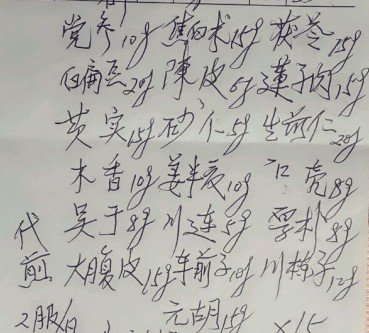 党参10g 焦白术15g 茯苓15g
白扁豆20g 陳皮6g 蓮子肉15g
芡实15g 砂仁5g 生苡仁20g
木香10g 姜半夏10g 口壳8g
吴于8g 川连5g 厚朴8g
代煎 大腹皮15g 车前子10g 川楝子12g
2服/日 元胡15g ×15